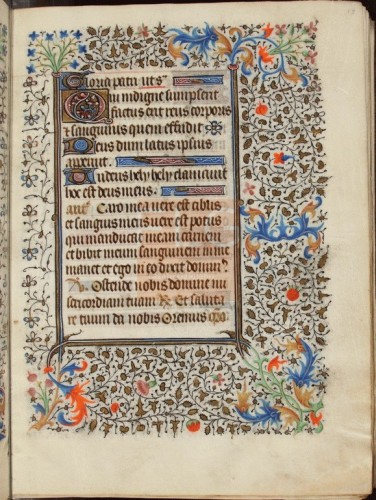 Gloria patri ut s
Qui indigne sumpserit
factus erit reus corporis
et sanguinis quem effudit
Deus dum latus ipsius
aperuit
Iudeus hely hely clamavit
hoc est deus meus
Caro mea vere est cibus
et sanguis meus vere est potus
qui manducat meam carnem
et bibit meum sanguinem in me
manet et ego in eo dixit dominus
V. Ostende nobis domine mi
sericordiam tuam R. Et saluta
re tuum da nobis Oremus